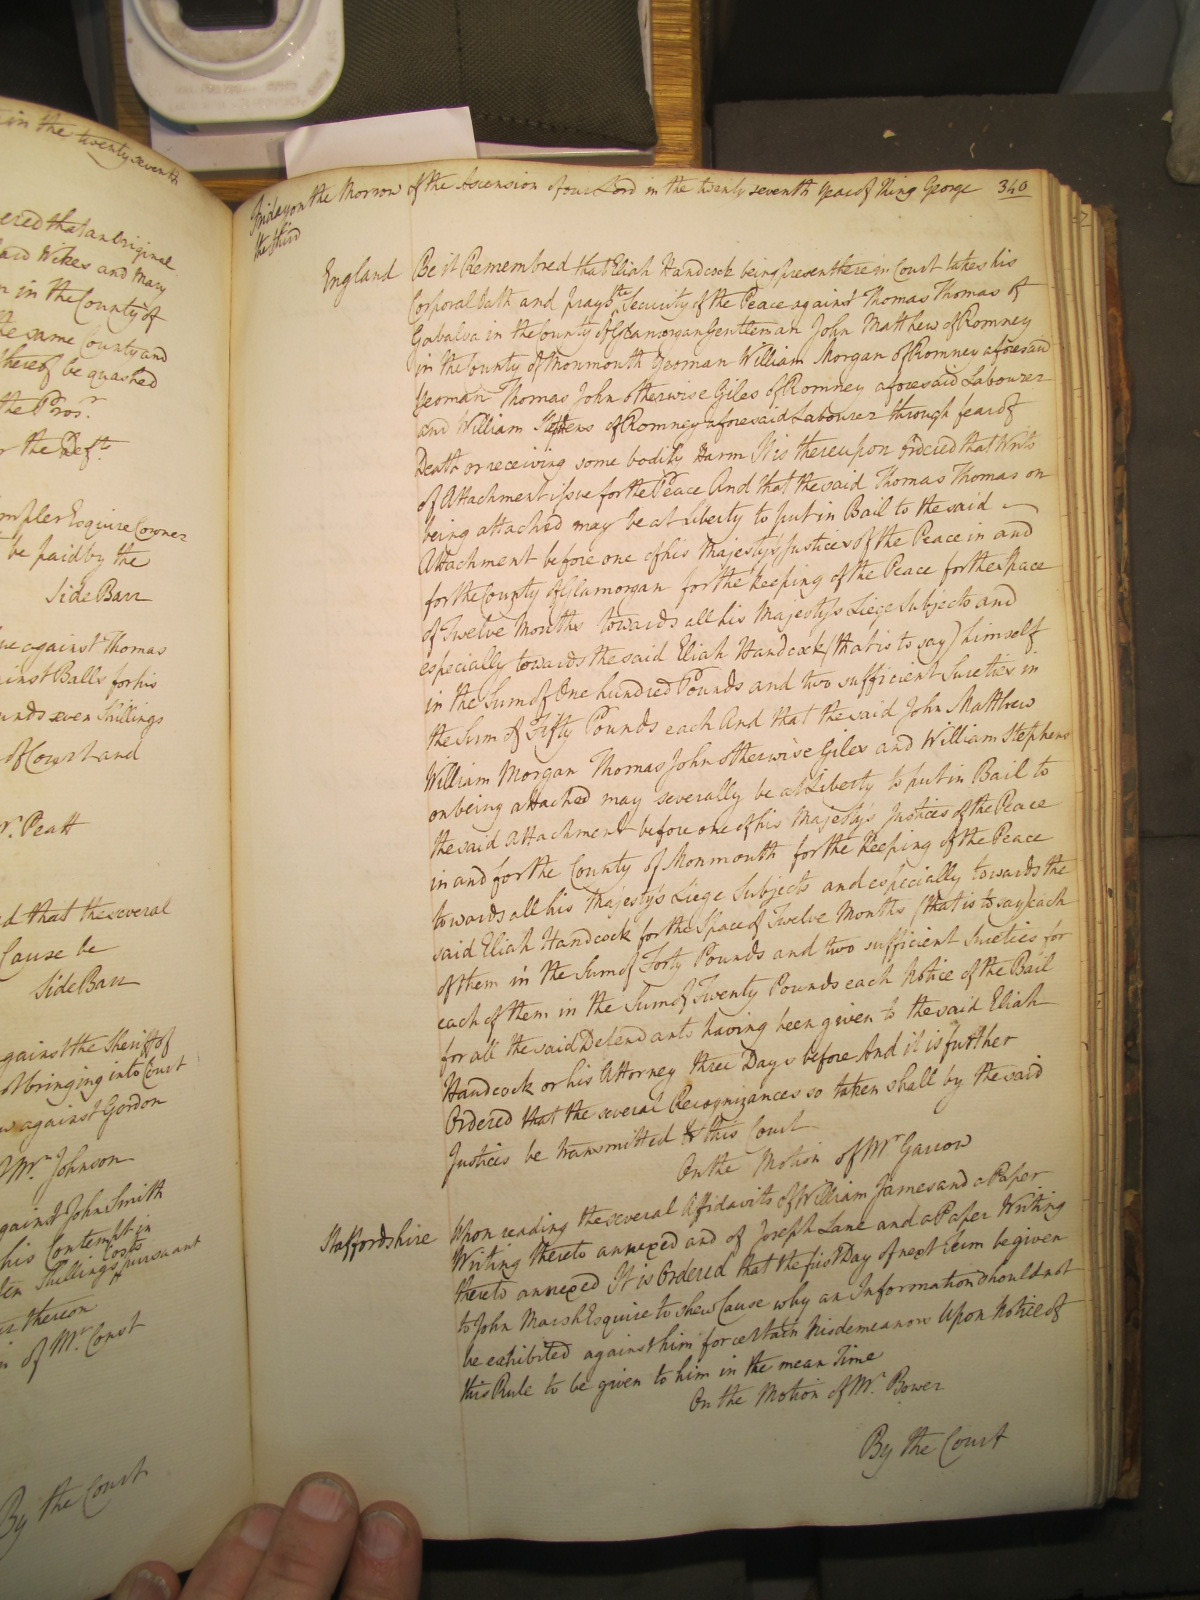 in the twenty seventh
ered that an Original
said Wikes and Mary
n in the County of
the same County and
thereof be quashed
the Pros.r
r the Def.t
mpler Esquire Coroner
be paid by the
Side Barr
ue against Thomas
ainst Balls for his
unds seven Shillings
of Court and
r. Peatt
d that the several
Cause be
Side Barr
gainst the Sheriff of
ot bringing into Court
w against Gordon
Mr. Johnson
gainst John Smith
his Contempt in
Costs
ten Shillings pursuant
thereon
n of Mr. Const
By the Court
Friday on the Morrow of the Ascension of our Lord in the twenty seventh Year of King George 340
the third
England Be it Remembred that Eliah Handcock being present here in Court takes his
Corporal Oath and prays the Security of the Peace against Thomas Thomas of
Gabalva in the County of Glamorgan Gentleman John Matthew of Romney
in the County of Monmouth Yeoman William Morgan of Romney aforesaid
Yeoman Thomas John otherwise Giles of Romney aforesaid Labourer
and William Stephens of Romney aforesaid Labourer through fear of
Death or receiving some bodily Harm It is thereupon Ordered that Writs
of Attachment issue for the Peace And that the said Thomas Thomas on
being attached may be at Liberty to put in Bail to the said
Attachment before one of his Majesty's Justices of the Peace in and
for the County of Glamorgan for the keeping of the Peace for the space
of Twelve Months towards all his Majesty's Liege Subjects and
especially towards the said Eliah Handcock (that is to say) himself
in the Sum of One hundred Pounds and two sufficient Sureties in
the Sum of Fifty Pounds each And that the said John Matthew
William Morgan Thomas John otherwise Giles and William Stephens
on being attached may severally be at Liberty to put in Bail to
the said Attachment before one of his Majesty's Justices of the Peace
in and for the County of Monmouth for the Keeping of the Peace
towards all his Majesty's Liege Subjects and especially towards the
said Eliah Handcock for the Space of Twelve Months (that is to say) each
of them in the Sum of Forty Pounds and two sufficient Sureties for
each of them in the Sum of Twenty Pounds each Notice of the Bail
for all the said Defendants having been given to the said Eliah
Handcock or his Attorney three Days before And it is further
Ordered that the several Recognizances so taken shall by the said
Justices be transmitted to this Court
On the Motion of Mr. Garrow
Staffordshire Upon reading the several Affidavits of William James and a Paper
Writing thereto annexed and of Joseph Lane and a Paper Writing
thereto annexed It is Ordered that the first Day of next Term be given
to John Marsh Esquire to shew Cause why an Information should not
be exhibited against him for certain Misdemeanors Upon Notice of
this Rule to be given to him in the mean Time
On the Motion of Mr. Bower
By the Court